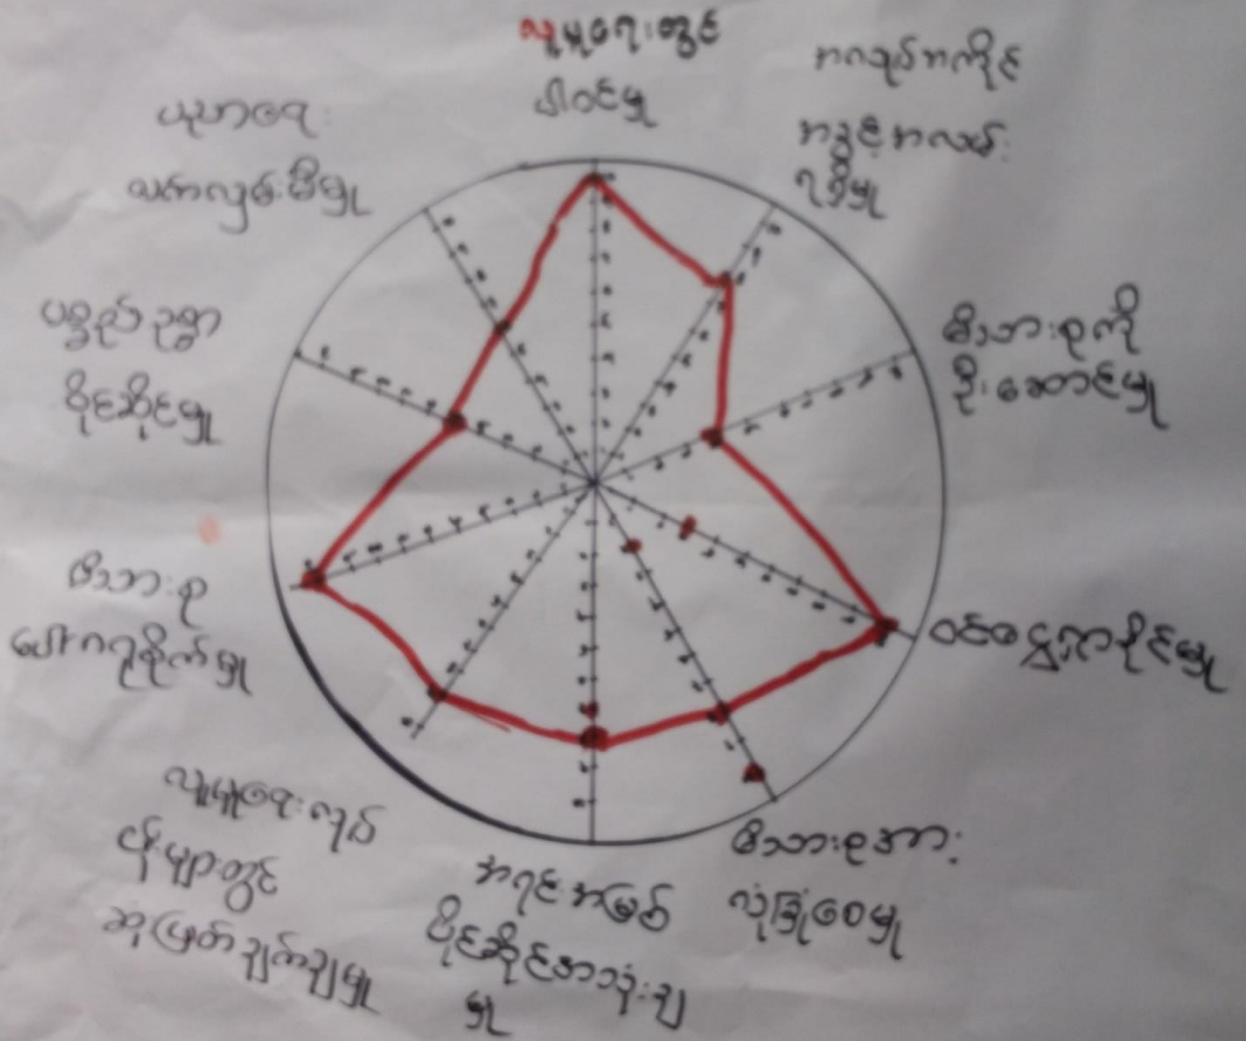 လူမှုရေးတွင်
ပါဝင်မှု
အလုပ်အကိုင်
အခွင့်အလမ်း
ရရှိမှု
မိသားစုကို
ဦးဆောင်မှု
ဝင်ငွေရှာနိုင်မှု
မိသားစုအား
လုံခြုံစေမှု
အရင်းအမြစ်
ပိုင်ဆိုင်အသုံးချ
မှု
လူမှုရေးလုပ်
ငန်းများတွင်
ဆုံးဖြတ်ချက်ချမှု
မိသားစု
ပစ္စည်းဥစ္စာ
ပိုင်ဆိုင်မှု
ပညာရေး